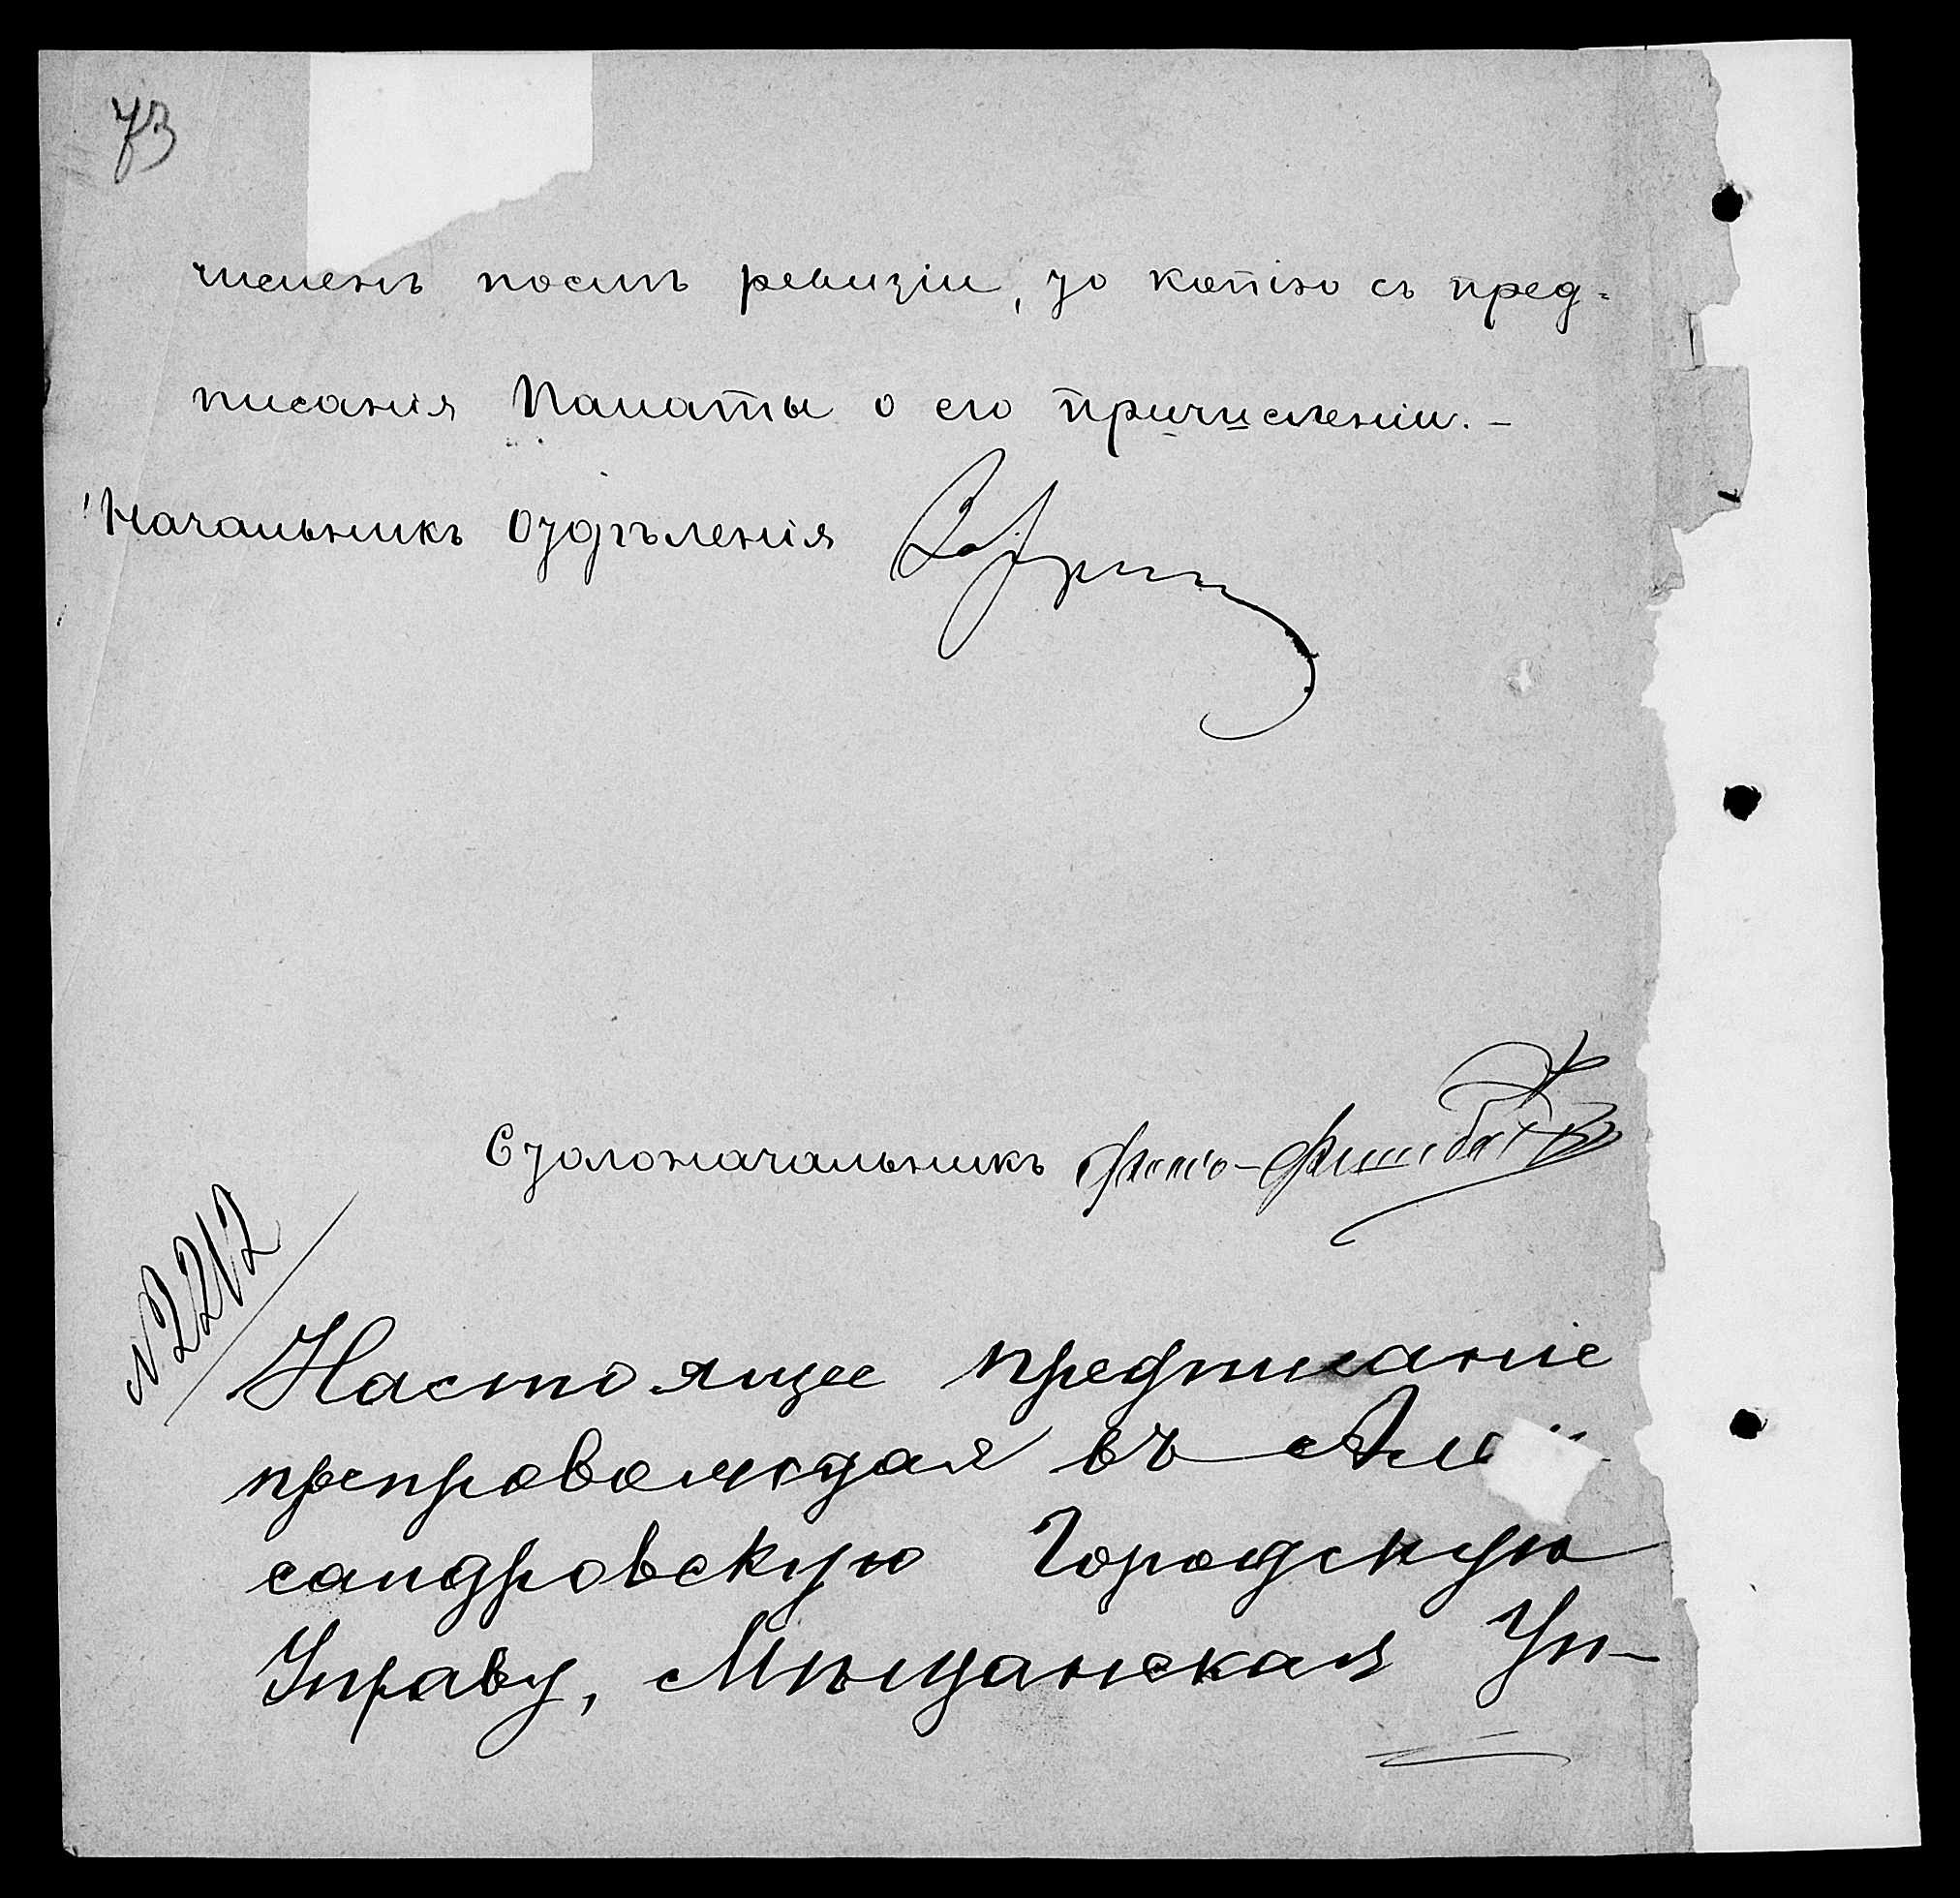 73
численъ послѣ ревизіи, то копію съ пред=
писанія Палаты о его причисленіи. —
Начальникъ Отдѣленія
Столоначальникъ
№ 2212
Настоящее предписаніе
препровождая въ
сандровскую Городскую
Управу, Мѣщанская Уп-